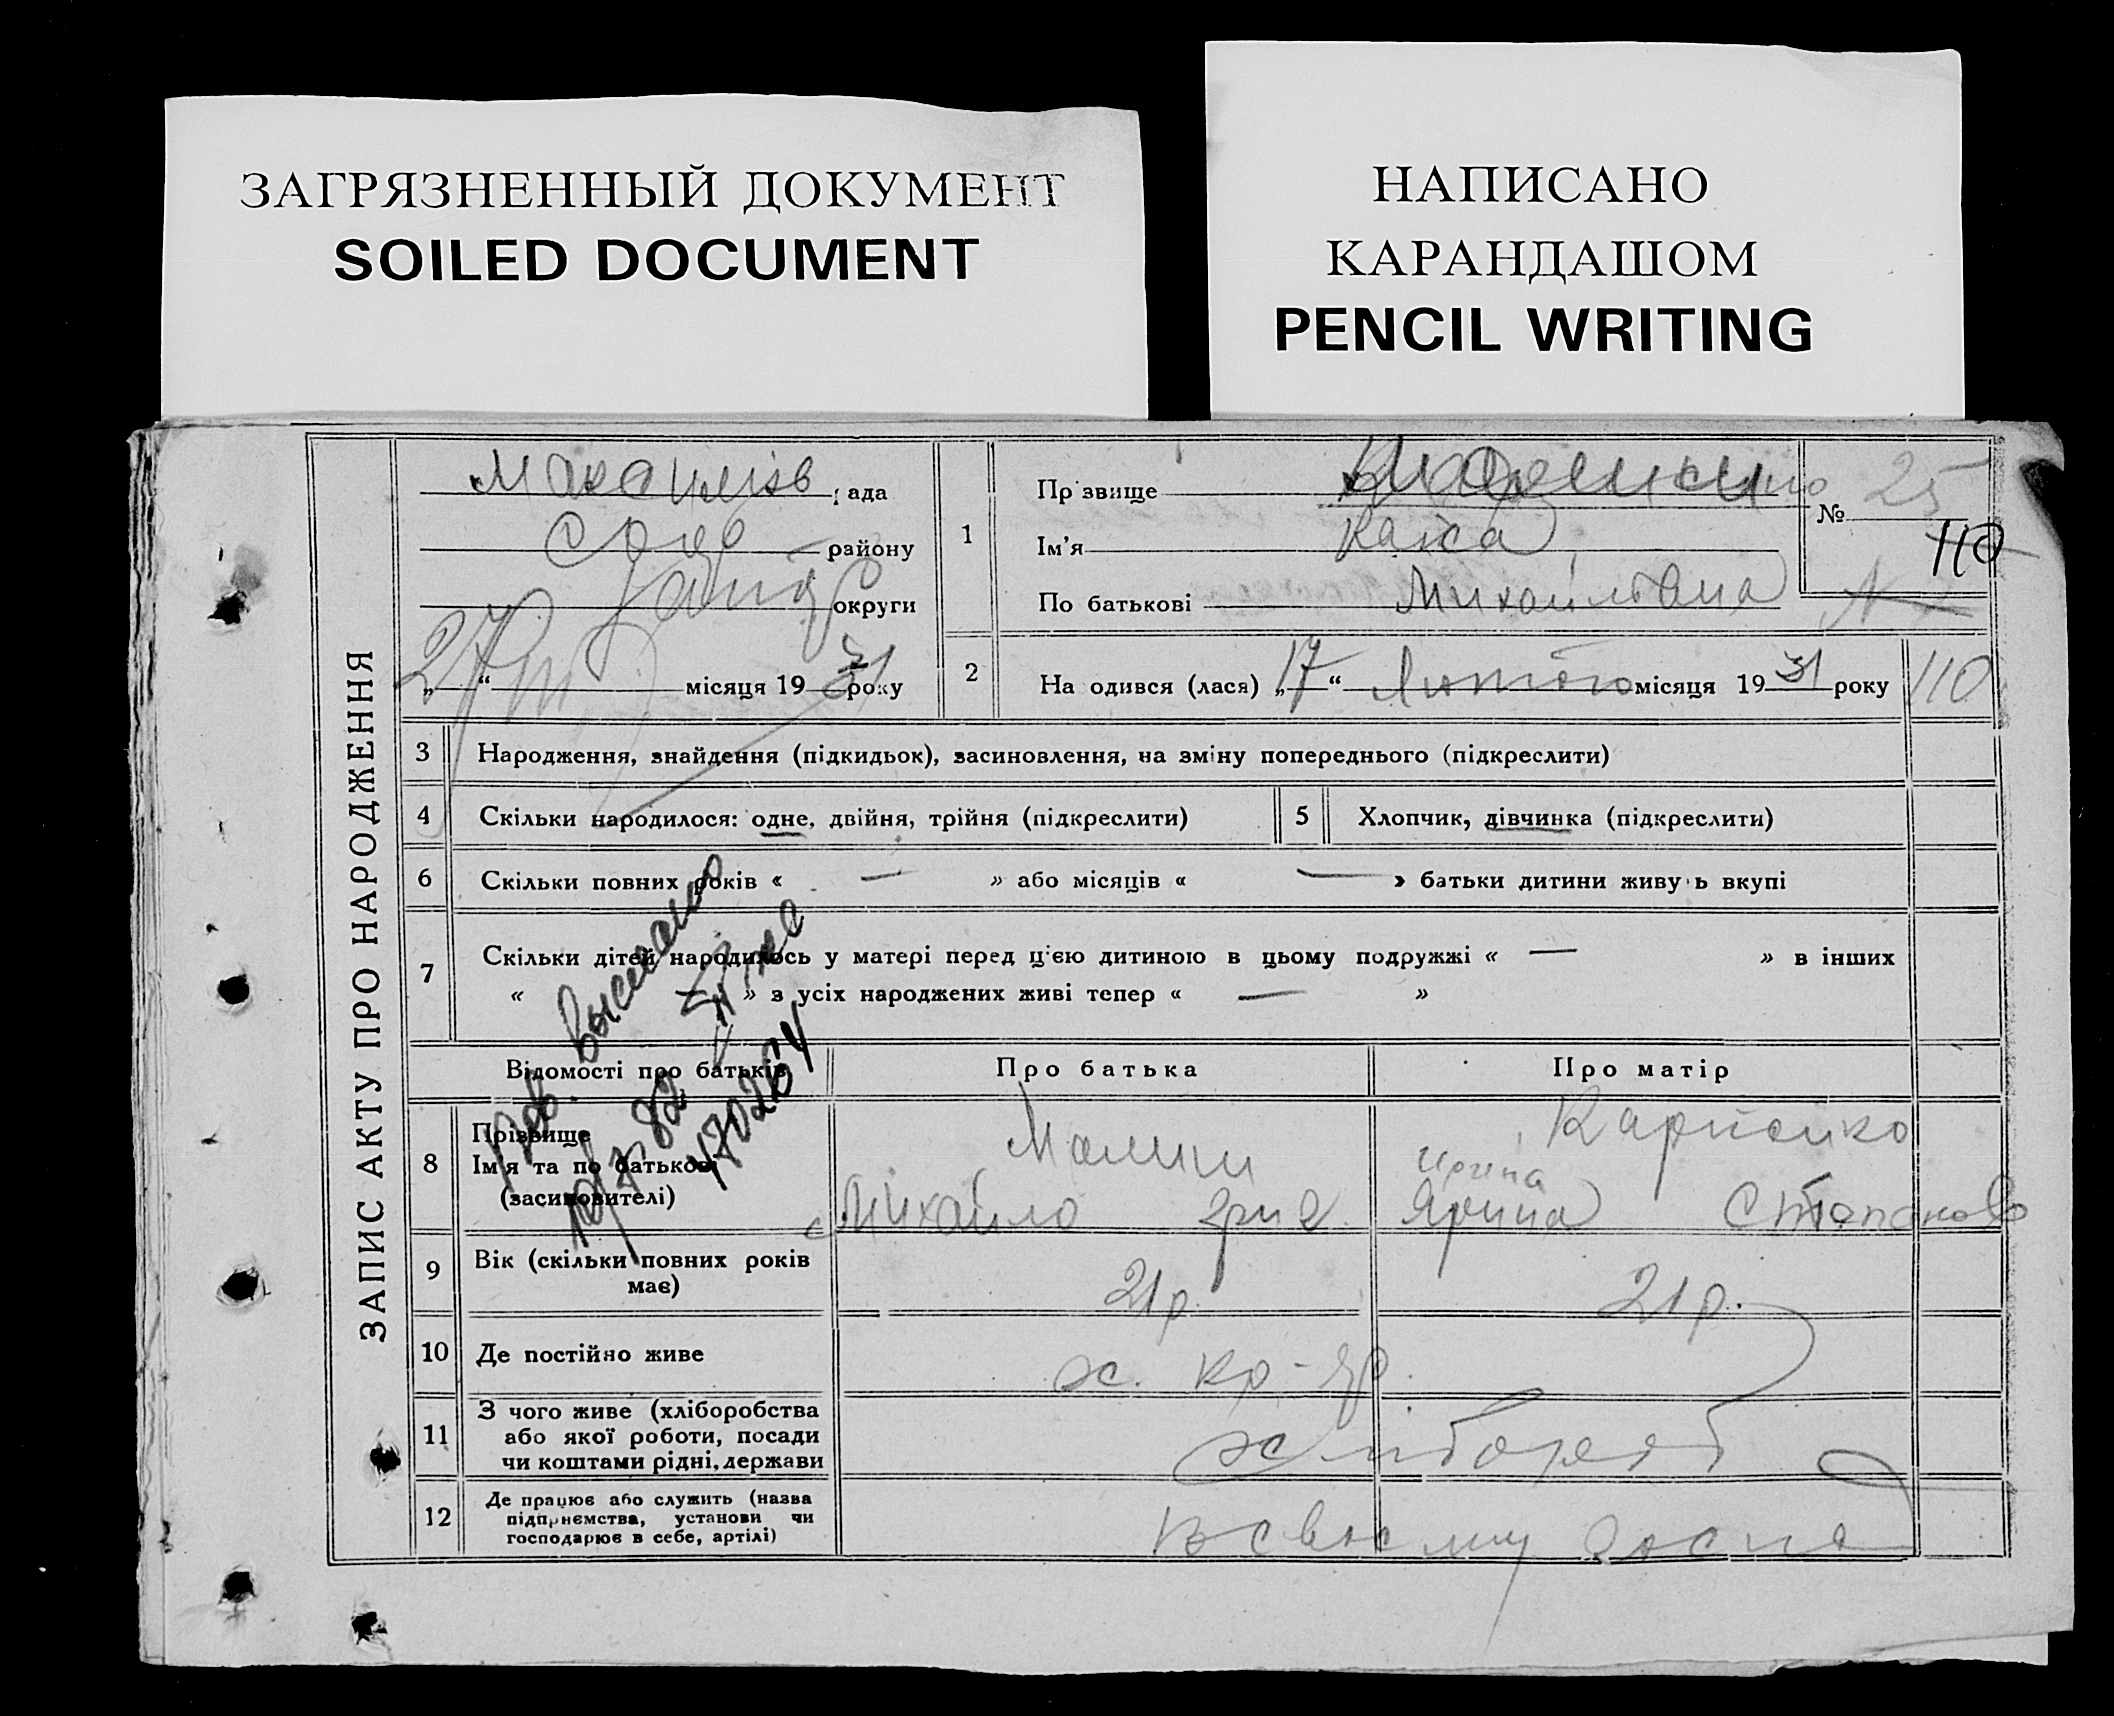 ЗАГРЯЗНЕННЫЙ ДОКУМЕНТ
SOILED DOCUMENT
НАПИСАНО
КАРАНДАШОМ
PENCIL WRITING
ЗАПИС АКТУ ПРО НАРОДЖЕННЯ
рада
району
округи
„27“ місяця 1931 року
1
Прізвище
Ім'я Катя
По батькові Михайлівна
№ 25
110
2 На одився (лася) „17“ Лютого місяця 1931 року 110
3 Народження, знайдення (підкидьок), засиновлення, на зміну попереднього (підкреслити)
4 Скільки народилося: одне, двійня, трійня (підкреслити) 5 Хлопчик, дівчинка (підкреслити)
6 Скільки повних років « — » або місяців « — » батьки дитини живуть вкупі
7 Скільки дітей народилось у матері перед ц'єю дитиною в цьому подружжі « — » в інших
« — » з усіх народжених живі тепер « — »
Відомості про батьків Про батька Про матір
8 Прізвище Карпенко
Ім'я та по батькові Ирина
(засиновителі) Михайло Ярина Степанов
9 Вік (скільки повних років 21р. 21р.
має)
10 Де постійно живе х. Кр-Яр
11 З чого живе (хліборобства
або якої роботи, посади хлібороб
чи коштами рідні, держави
12 Де працює або служить (назва
підприємства, установи чи В своєму госпо
господарює в себе, артілі)
Выслано
470264